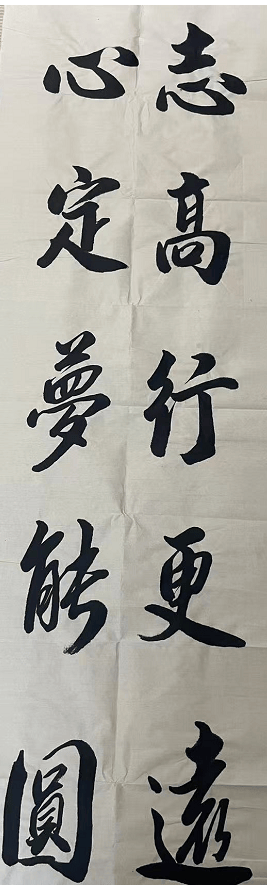 志高行更遠
心定夢能圓